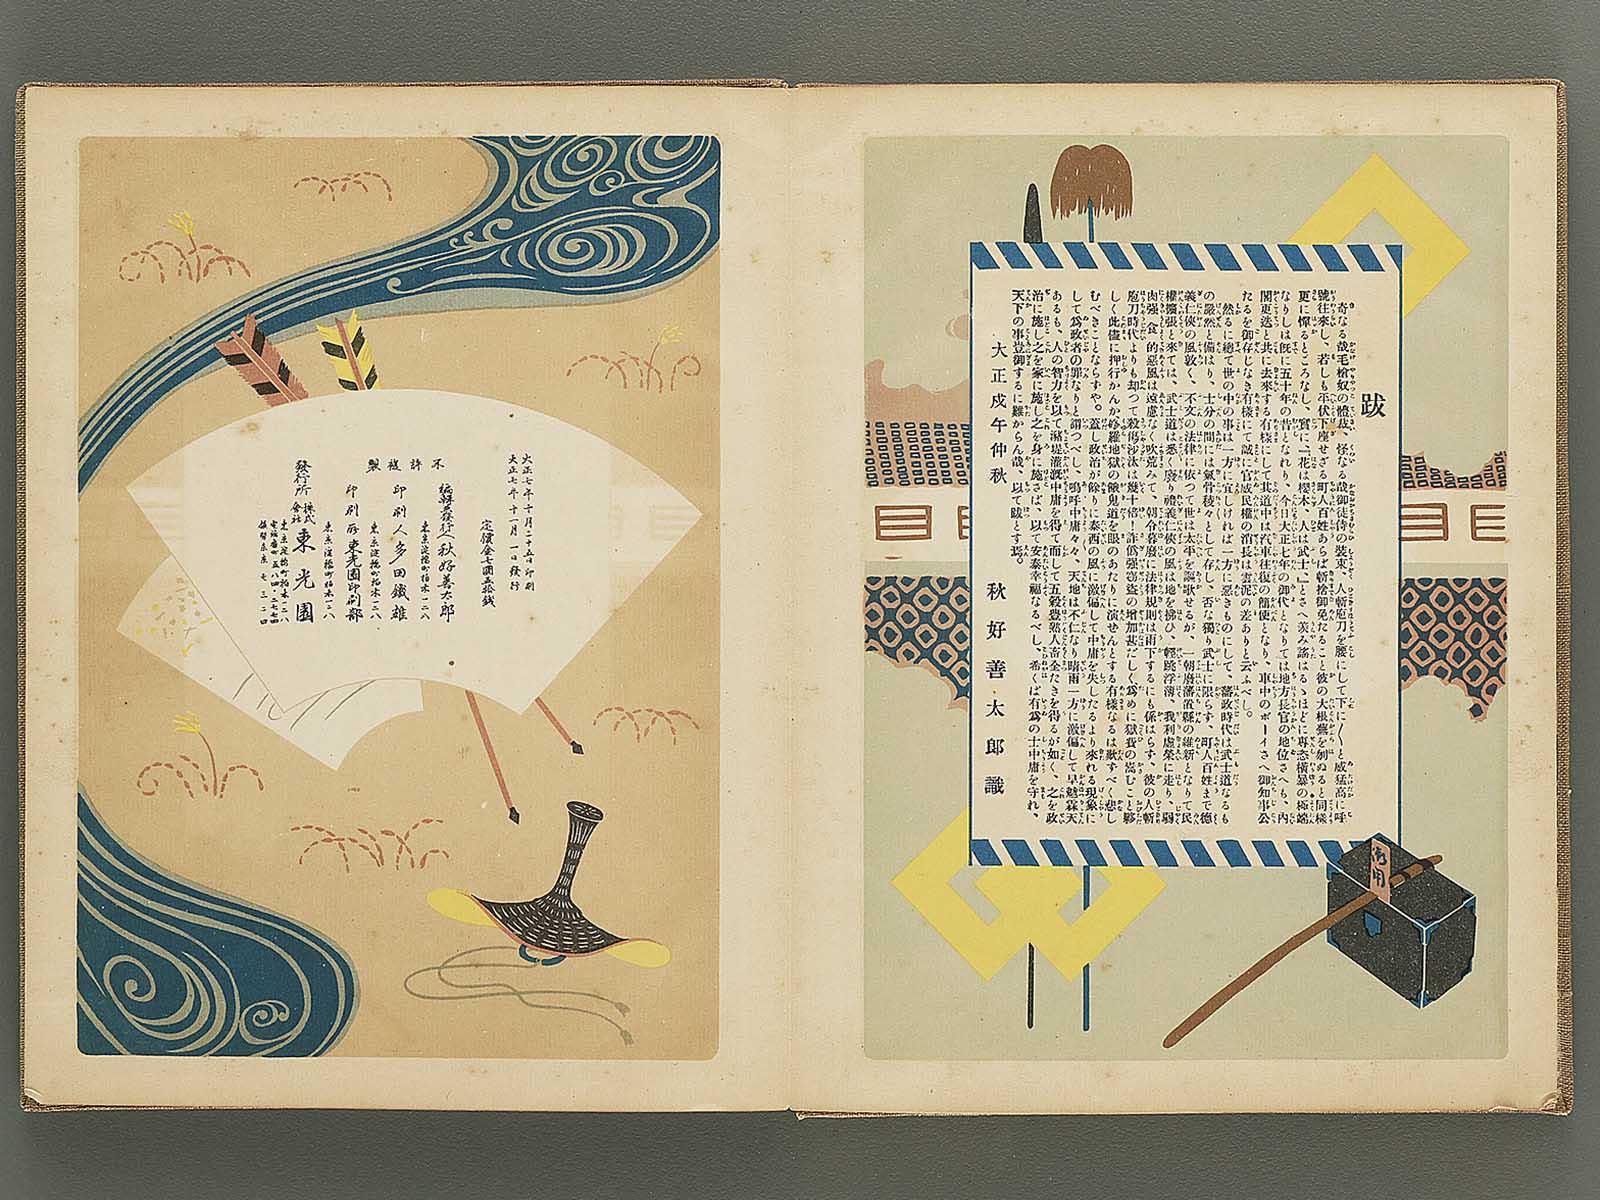 跋
奇なる哉毛槍奴の體裁、怪なる哉御徒侍の裝束、人斬庖刀を腰にして下に〳〵と威猛高に呼
號往來し、若しも平伏下座せざる町人百姓あらば斬捨御免たること彼の大根蕪を刎ぬると同樣
更に憚るところなし、實に「花は櫻木、人は武士」とさへ羨み謠はるゝほどに專恣橫暴の極端
なりしは既に五十年の昔となれり、今日大正七年の御代となりては地方長官の地位さへも、內
閣更迭と共に去來する有樣にして其道中は汽車往復の簡便となり、車中のボーイさへ御知事公
たるを御存じなき有樣にて誠に官威民權の消長は雲泥の差ありと云ふべし。
然るに總て世の中の事は一方に宜しければ一方に惡きものにして、藩政時代は武士道なるも
の嚴然と備はり、士分の間には氣骨稜々として存し、否な獨り武士に限らず、町人百姓まで德
義仁俠の風敦く、不文の法律に依つて世は太平を謳歌せるが、一朝廢藩置縣の維新となりて民
權擴張と來ては、武士道は悉く廢り禮義仁俠の風は地を拂ひ、輕跳浮薄、我利虛榮に走り、弱
肉强食的惡風は遠慮なく吹荒みて、朝令暮廢に法律規則は雨下するにも係はらず、彼の人斬
庖刀時代よりも却つて殺傷沙汰は幾十倍!詐僞强竊盜の增加甚だしく爲めに獄裁の嵩むこと夥
しく此儘に押行かんか修羅地獄の餓鬼道を眼のあたりに演せんとする有樣なるは歎すべく悲し
むべきことならずや。蓋し政治が餘りに泰西の風に激偏して中庸を失したるより來れる現象に
して爲政者の罪なりと謂つべし、嗚呼中庸々々、天地は不仁なり晴雨一方に激偏して旱魃霖天
あるも、人の智力を以て溜堤灌漑中庸を得て而して五穀豐熟人畜全たきを得るが如く、之を政
治に施し之を家に施し之を身に施さば、以て安泰幸福なるべし、希くば有爲の士中庸を守れ、
天下の事豈御するに難からん哉、以て跋とす焉。
大正戊午仲秋
秋好善太郎識
御用
大正七年十月二十五日印刷
大正七年十一月一日發行
定價金七圓五拾錢
編輯兼發行人 秋好善太郎
東京淀橋町柏木一二八
印刷人 多田鐵雄
東京淀橋町柏木一二八
印刷所 東光園印刷部
東京淀橋町柏木一二八
不許複製
發行所 株式會社 東光園
東京淀橋町柏木一二八